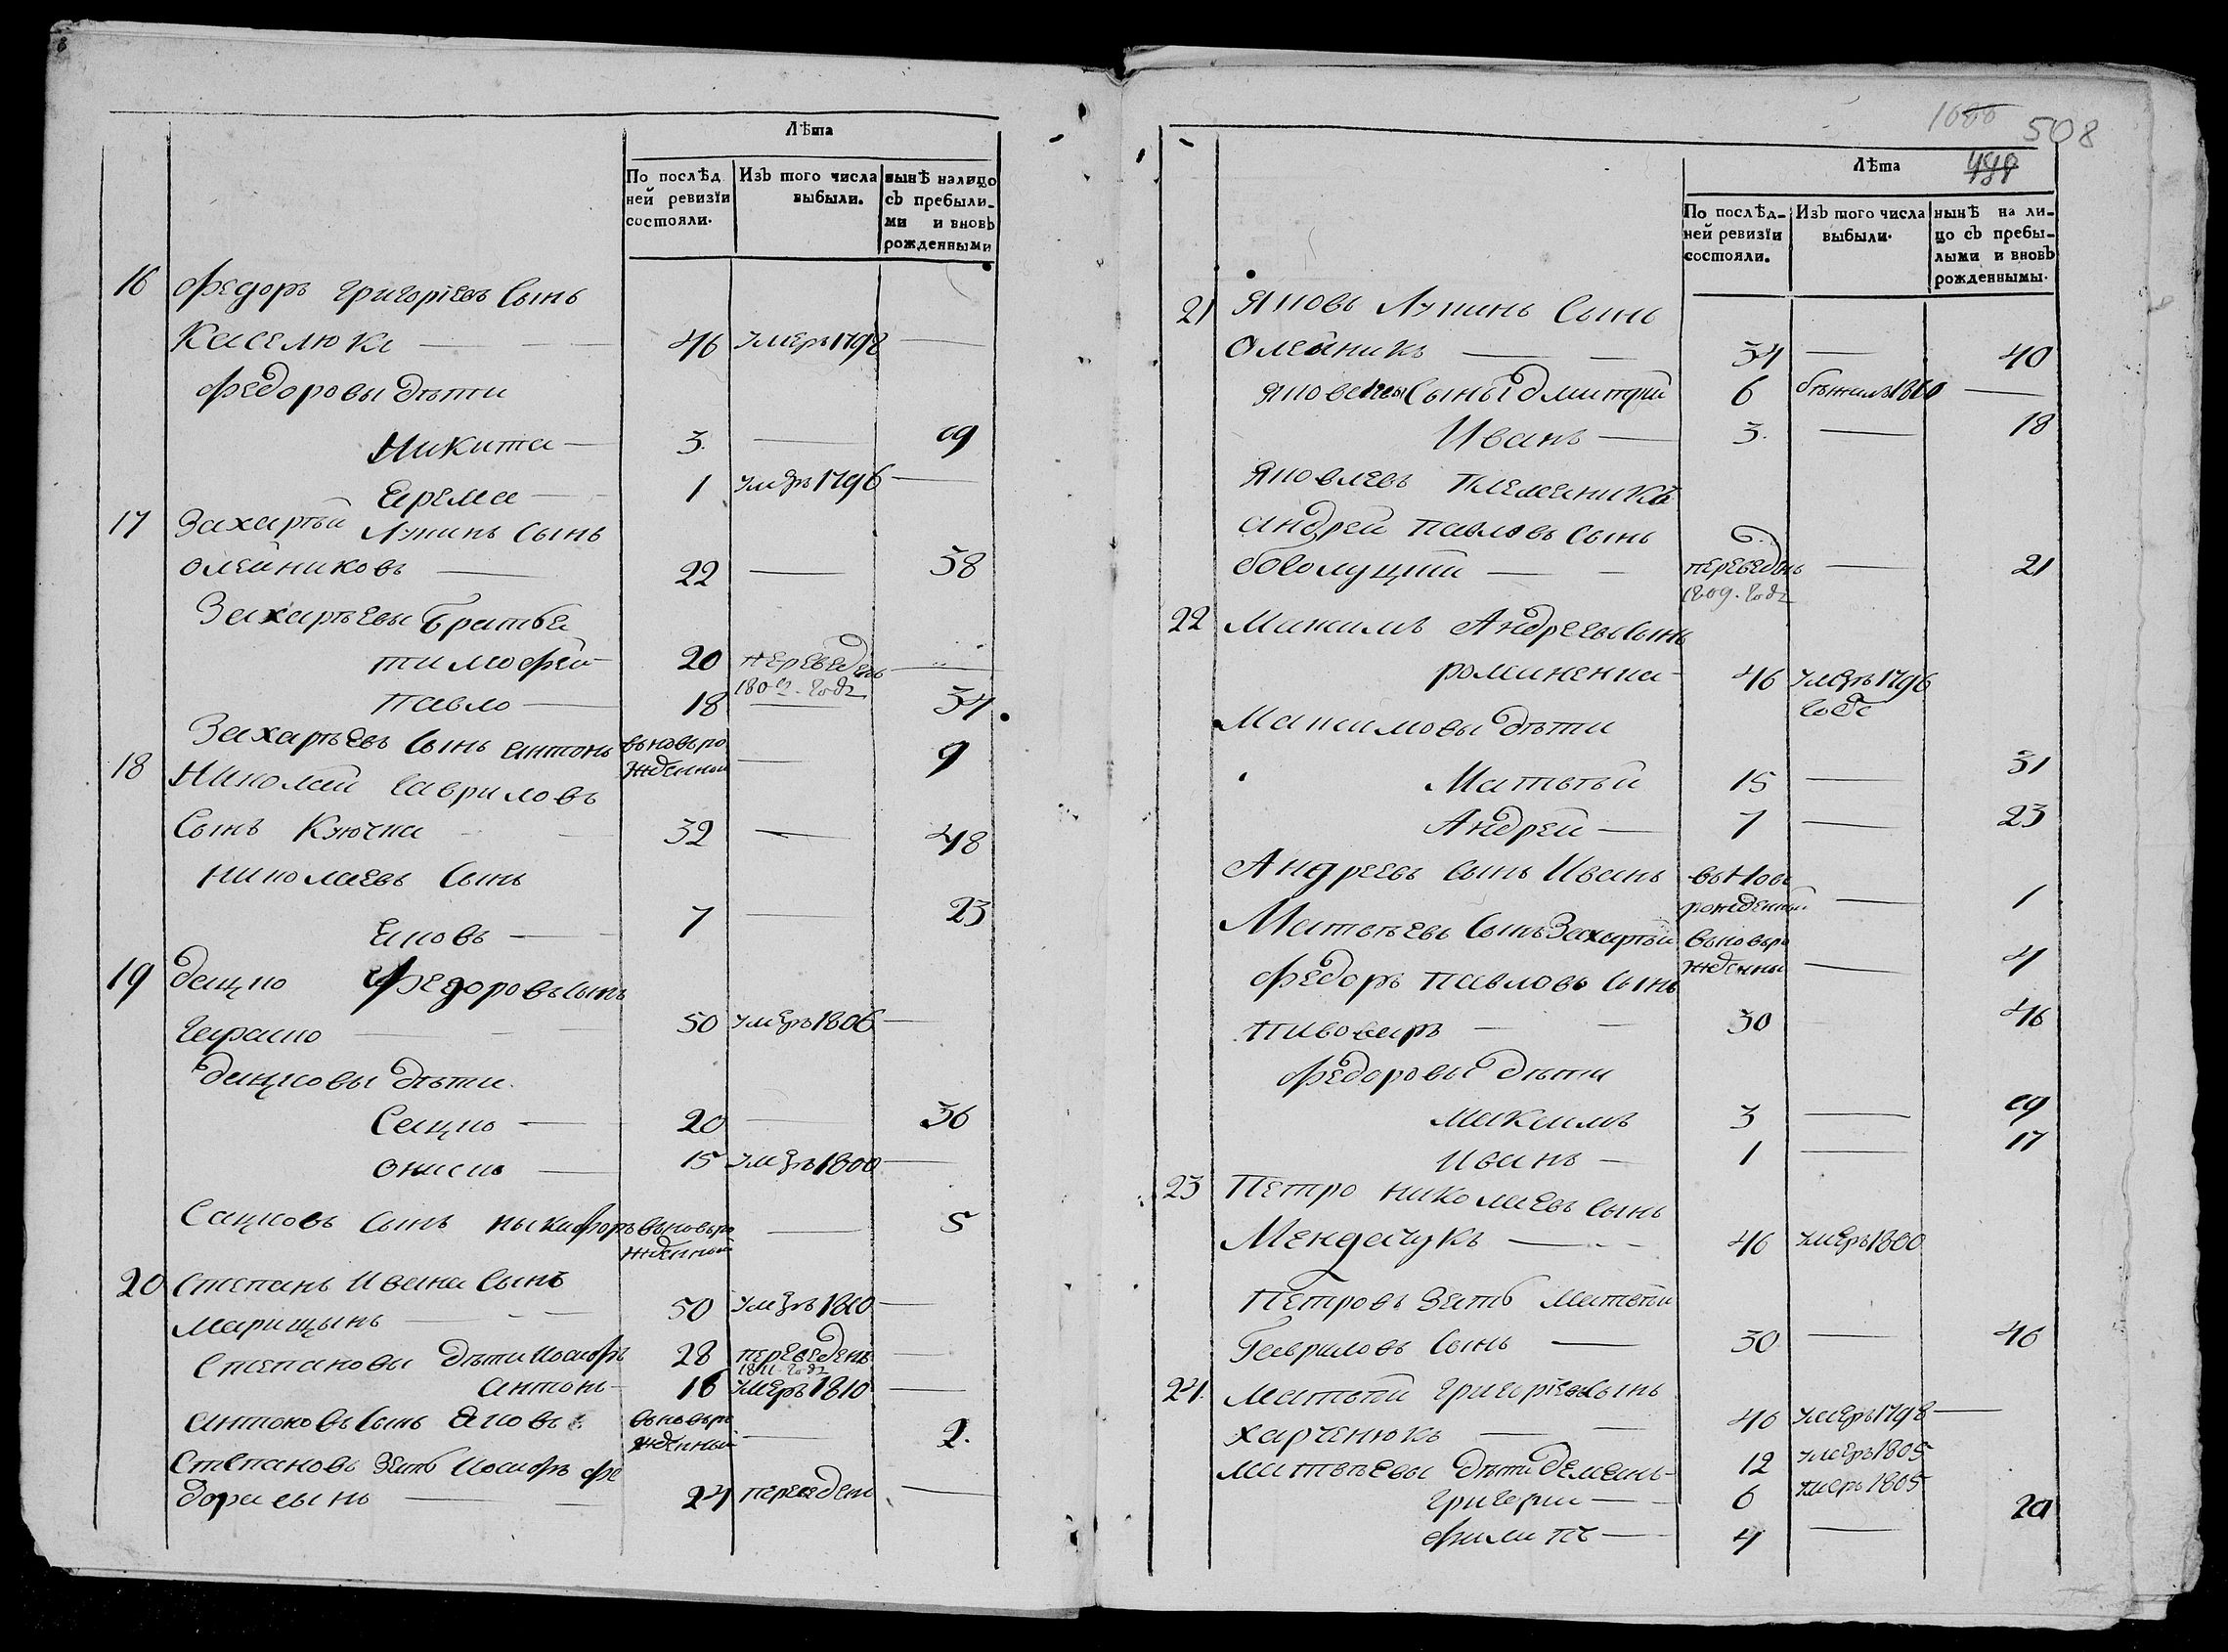 Лѣта
По послѣд
ней ревизїи
состояли.
Изъ того числа
выбыли.
нынѣ налицо
съ пребыли-
ми и вновь
рожденными
16 Федоръ Григорїевъ Сынъ
Каселюкъ 46 умеръ 1798
Федоровы дѣти
Никита 3. 19
Ярема 1 умеръ 1796
17 Захарѣй Лукинъ Сынъ
Олейниковъ 22 38
Захарьевы братья
тимофей 20 переведенъ
180 годъ
павло 18 34
Захарьевъ Сынъ антонъ вьновьро
жденный 9
18 Николай Гавриловъ
Сынъ Ключка 32 48
николаевъ Сынъ
Яковъ 7 23
19 дацко Федоровъ сынъ
Герасио 50 умеръ 1806
дацковы дѣти
Сацко 20 36
Ониско 15 умеръ 1800
Сацковъ Сынъ никифоръ вьновьро
жденный 5
20 Степанъ Ивана Сынъ
Марищынъ 50 умеръ 1810
Степановы дѣти Иосифъ 28 переведенъ
1811 годъ
антонъ 16 умеръ 1810
антоновъ Сынъ Яковъ вьновьро
жденный 2.
Степановъ Зять Иосифъ Фе
дора сынъ 24 переведенъ
1680 508
498
Лѣта
По послѣд-
ней ревизїи
состояли.
Изъ того числа
выбыли.
нынѣ на ли-
цо съ пребы-
лыми и вновь
рожденнымы.
21 Яковъ Лукинъ Сынъ
Олейникъ 34 40
Яковлевы Сыны дмитрий 6 бѣжилъ 1810
Иванъ 3. 18
Яковлевъ племеникъ
андрей павловъ Сынъ 6.
переведенъ 21
1809. годъ
22 Максимъ Андреевъ Сынъ
романенко 46 умеръ 1796
годъ
Максимовы дѣти
Матвѣй 15 31
Андрей 7 23
Андреевъ сынъ Иванъ вьновь
рожденный 1
Матвѣевъ Сынъ Захарѣй вьновьро
жденны 4
Федоръ павловъ Сынъ
пивоваръ 30 46
Федоровы дѣти
Максимъ 3 19
Иванъ 1 17
23 Петро николаевъ Сынъ
Мендачукъ 46 умеръ 1800
Петровъ Зять Матвѣй
Гавриловъ Сынъ 30 46
24. Матвѣй Григорїевъ Сынъ
харченюкъ 46 умеръ 1798
матвѣевы дѣти демьянъ 12 умеръ 1805
Григорий 6 умеръ 1805
Филипъ 4 20